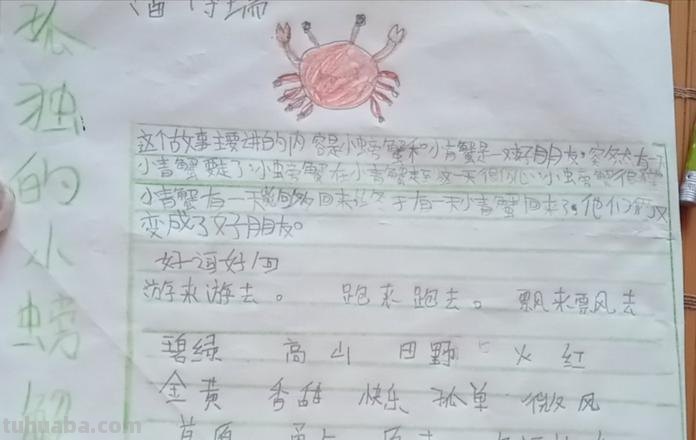 孤独的小螃蟹
这个故事主要讲的内容是小螃蟹和小青蟹是一对好朋友。突然有一天
小青蟹要走了，小螃蟹在小青蟹走
小青蟹有一天能够回来终于有一天小青蟹回来了，他们又
变成了好朋友。
好词好句
游来游去。 跑来跑去。 飘来飘去
碧绿 高山 田野 火红
金黄 香甜 快乐 孤单 微风
草原
tuhuaba.com